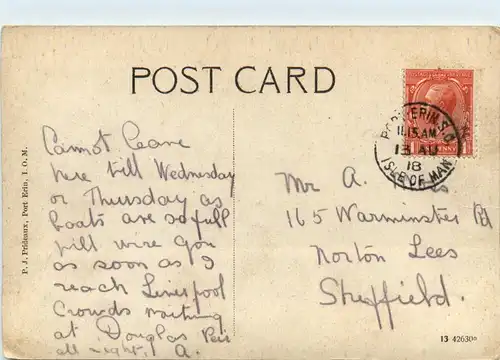 POST CARD
Cannot leave
here till Wednesday
or Thursday as
boats are so full
will wire you
as soon as I
reach Liverpool
Crowds waiting
at Douglas
all right. A.
P. J. Prideaux, Port Erin, I. O. M.
PORT ERIN S.O
11.15 AM
13 AU
18
ISLE OF MAN
Mr A.
165 Warminster Rd
Norton Lees
Sheffield.
13 42630